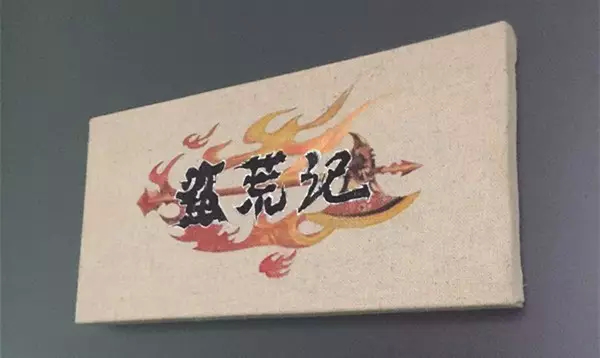 蛮荒记